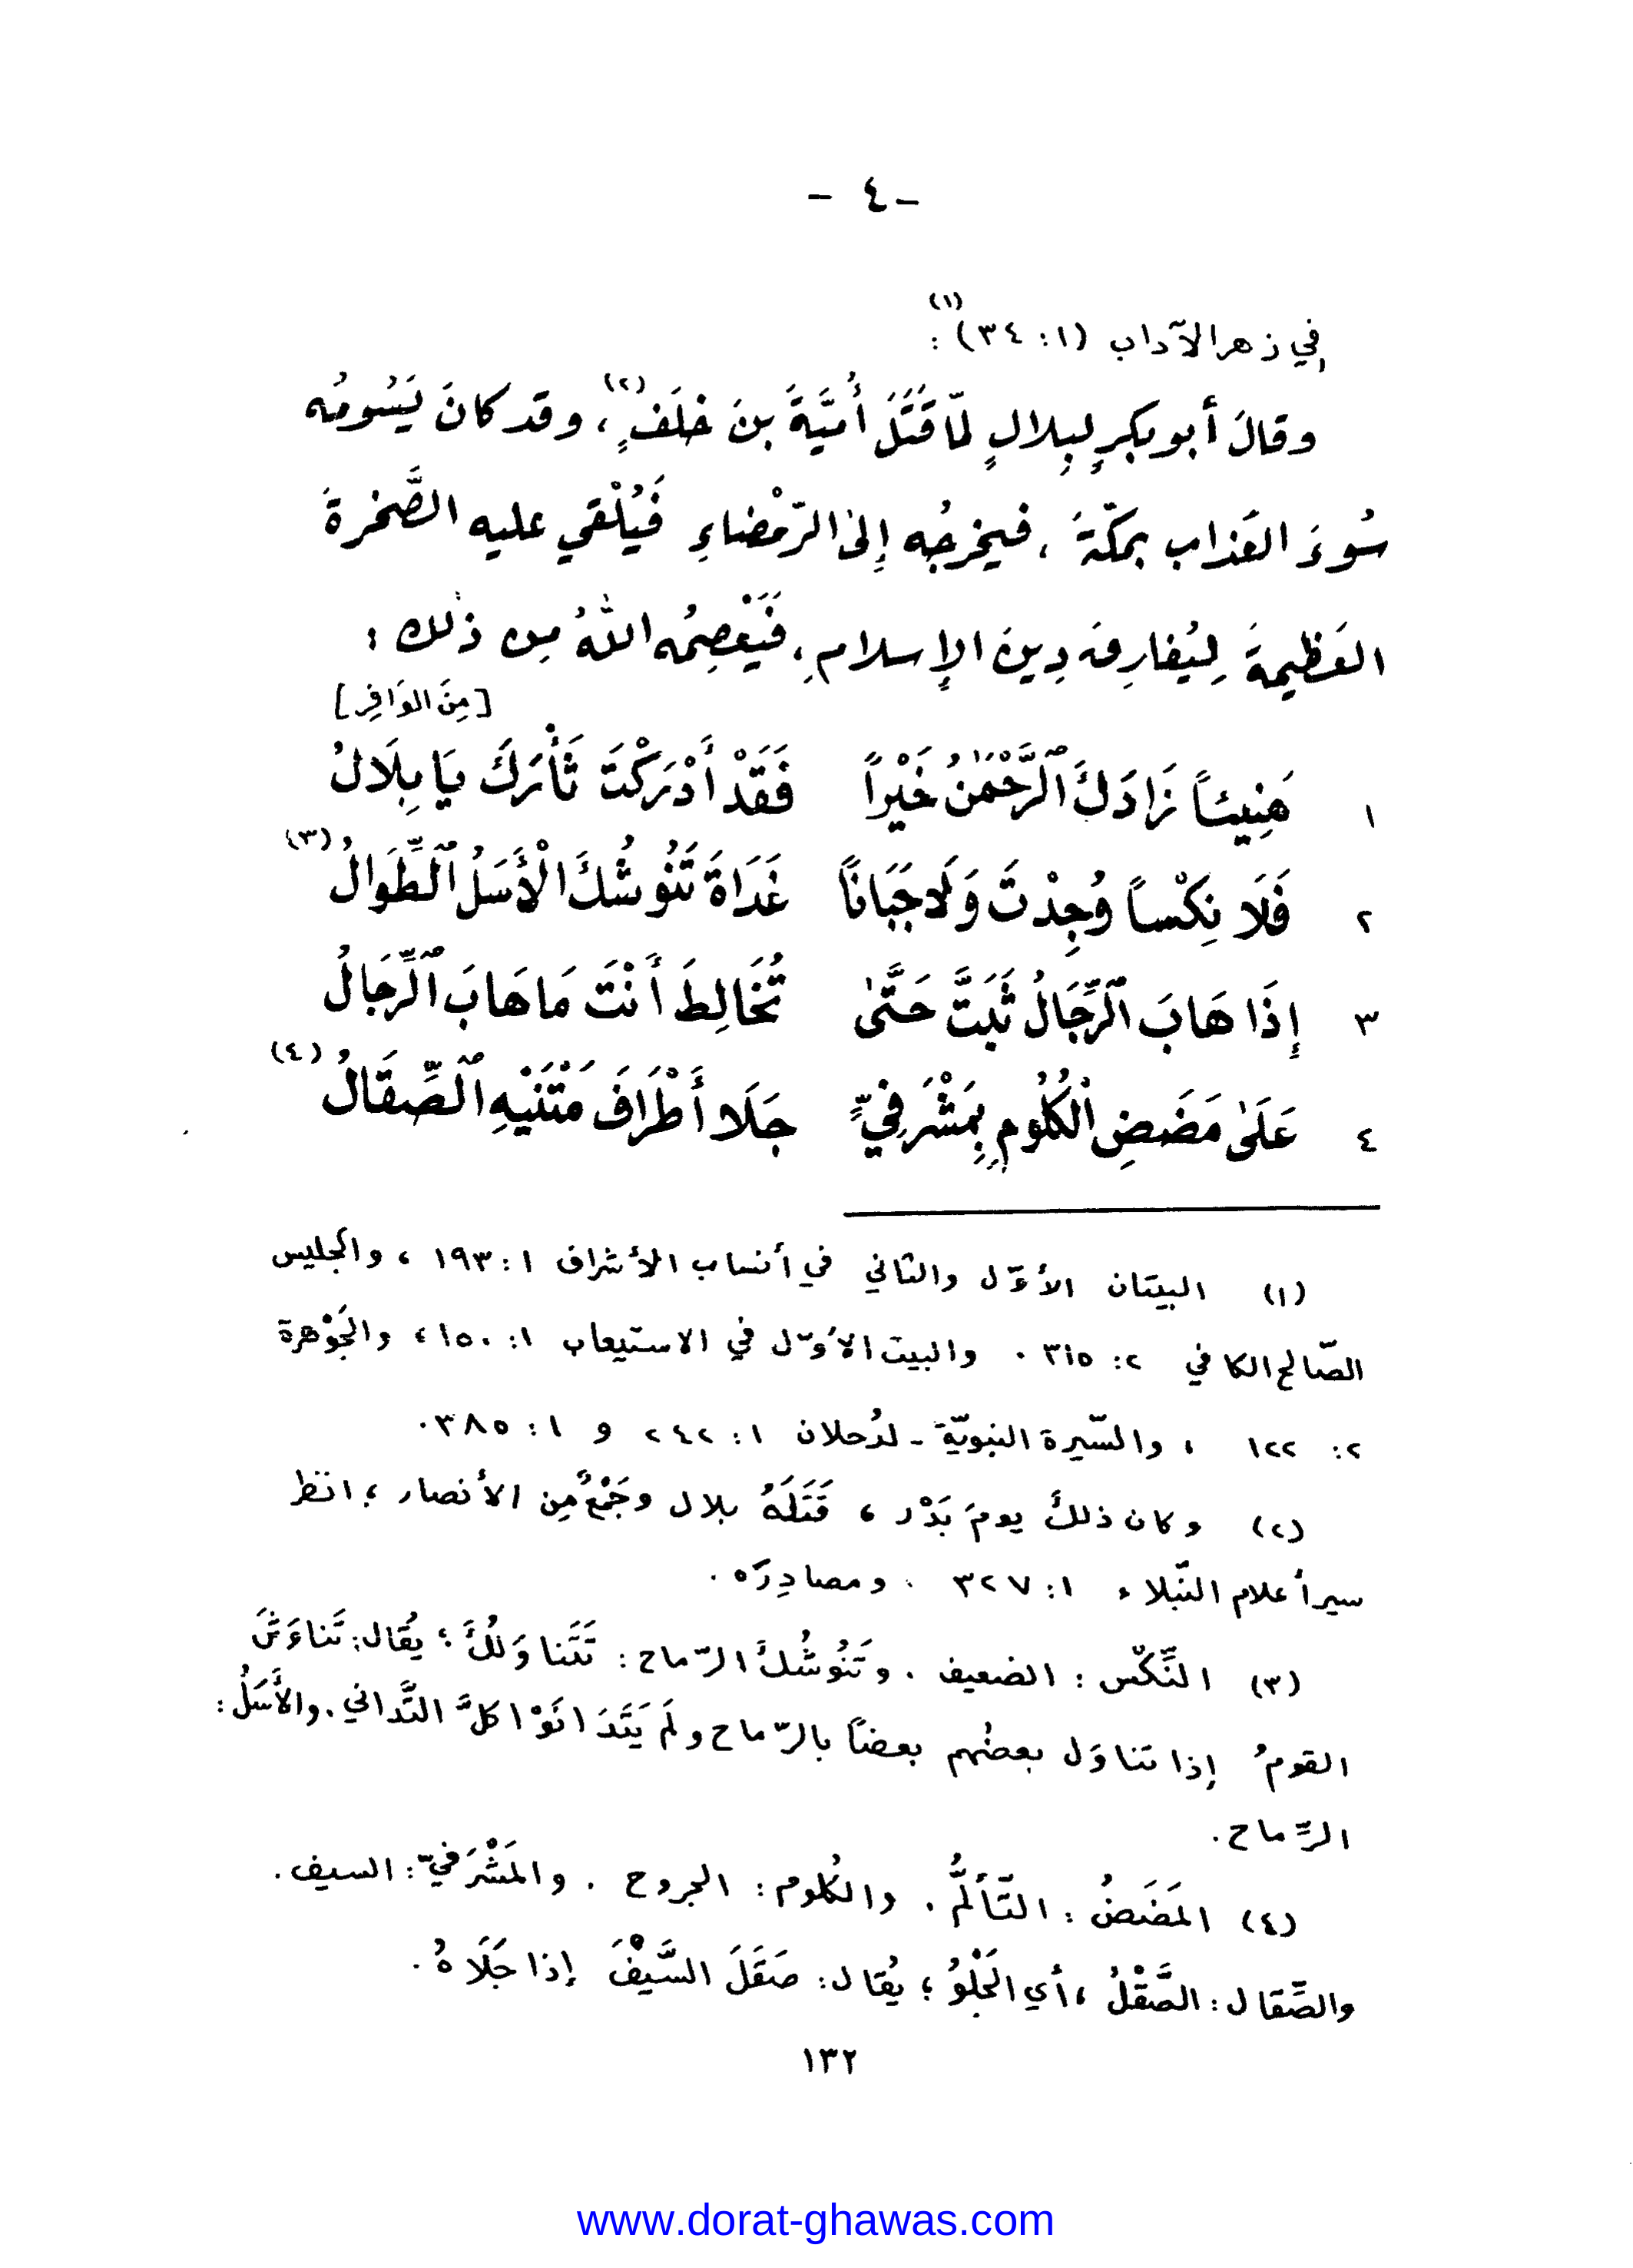 - ٤ -
في زهر الآداب (١: ٣٤)(١):
وقالَ أبو بكرٍ لِبِلالٍ لمّا قَتَلَ أُمَيَّةَ بنَ خلَفٍ(٢)، وقد كانَ يَسُومُه
سُوءَ العَذاب بمكّةَ، فيخرجُه إِلىٰ الرّمْضاءِ فَيُلْقي عليه الصَّخرةَ
العَظيمةَ لِيُفارِقَ دِينَ الإِسلامِ، فَيَعْصِمُه اللهُ مِن ذٰلك:
[مِنَ الوَافِر]
١ هَنِيئاً زَادَكَ ٱلرَّحْمٰنُ خَيْراً فَقَدْ أَدْرَكْتَ ثَأْرَكَ يَا بِلَالُ
٢ فَلَا نِكْساً وُجِدْتَ وَلَا جَبَاناً غَدَاةَ تَنُوشُكَ الْأَسَلُ ٱلطِّوَالُ(٣)
٣ إِذَا هَابَ ٱلرِّجَالُ ثَبَتَّ حَتَّىٰ تُخَالِطَ أَنْتَ مَا هَابَ ٱلرِّجَالُ
٤ عَلَىٰ مَضَضِ ٱلْكُلُومِ بِمَشْرَفِيٍّ جَلَا أَطْرَافَ مَتْنَيْهِ ٱلصِّقَالُ(٤)
(١) البيتان الأوّل والثاني في أنساب الأشراف ١: ١٩٣، والجليس
الصّالح الكافي ٢: ٣١٥. والبيت الأوّل في الاستيعاب ١: ١٥٠، والجَوْهرة
٢: ١٢٢، والسّيرة النبويّة - لدُحلان ١: ٢٤٢ و ١: ٣٨٥.
(٢) وكان ذلكَ يومَ بَدْر، قَتَلَهُ بلال وجَمْعٌ مِن الأنصار؛ انظر
سير أعلام النّبلاء ١: ٣٢٧. ومصادِرَه.
(٣) النِّكْس: الضعيف. وتَنُوشُكَ الرّماح: تَتَناوَلُكَ؛ يُقال: تَناءَشَ
القومُ إذا تناوَل بعضُهم بعضاً بالرّماح ولَم يَتَدَانَوْا كلَّ التَّداني. والأَسَلُ:
الرِّماح.
(٤) المَضَضُ: التّألُّم. والكُلوم: الجروح. والمَشْرَفيّ: السيف.
والصِّقال: الصَّقْلُ، أي الجَلْوُ؛ يُقال: صَقَلَ السَّيْفَ إذا جَلَاهُ.
١٣٢
www.dorat-ghawas.com